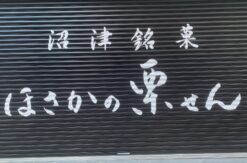 沼津銘菓
ほさかの栗せん